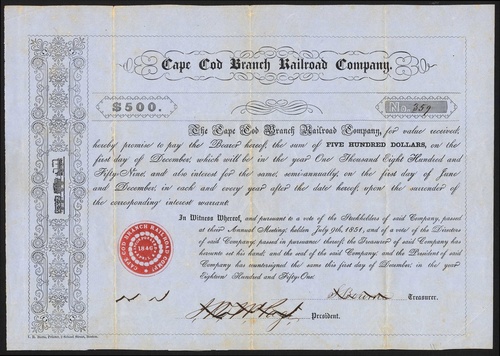 Cape Cod Branch Railroad Company.
$500.
No. 359
The Cape Cod Branch Railroad Company, for value received,
hereby promise to pay the Bearer hereof, the sum of FIVE HUNDRED DOLLARS, on the
first day of December, which will be in the year One Thousand Eight Hundred and
Fifty-Nine, and also interest for the same, semi-annually, on the first day of June
and December, in each and every year after the date hereof, upon the surrender of
the corresponding interest warrant.
In Witness Whereof, and pursuant to a vote of the Stockholders of said Company, passed
at their Annual Meeting, holden July 9th, 1851, and of a vote of the Directors
of said Company, passed in pursuance thereof, the Treasurer of said Company has
hereunto set his hand, and the seal of the said Company; and the President of said
Company has countersigned the same this first day of December, in the year
Eighteen Hundred and Fifty-One.
CAPE COD BRANCH RAILROAD COMPY.
1846
Treasurer.
President.